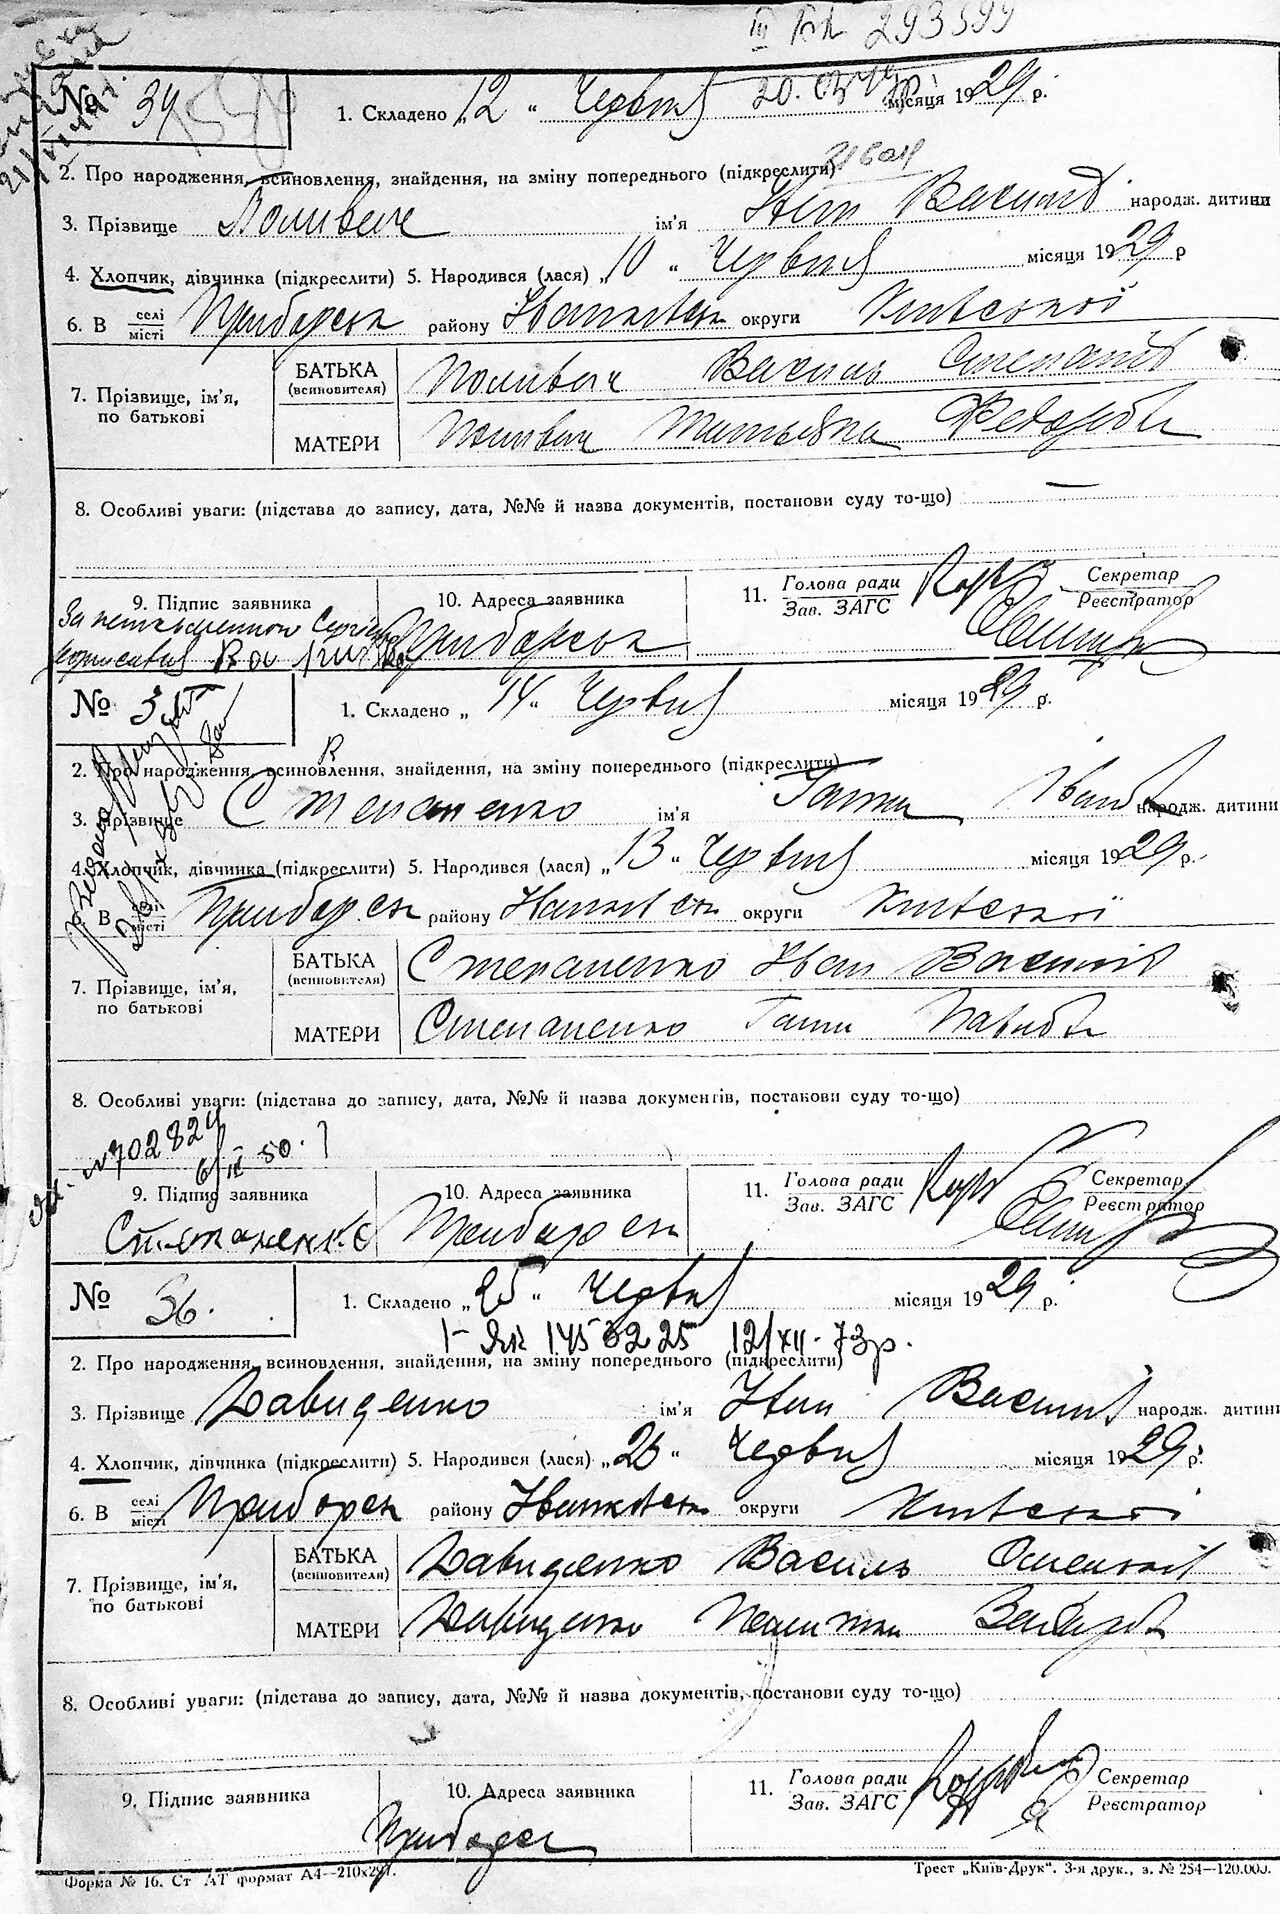 № 34
1. Складено „12“ Червня місяця 1929 р.
2. Про народження, всиновлення, знайдення, на зміну попереднього (підкреслити)
3. Прізвище Поливач ім'я Іван Василів народж. дитини
4. Хлопчик, дівчинка (підкреслити) 5. Народився (лася) „10“ Червня місяця 1929 р
6. В селі/місті Прибірськ району Іванківськ округи Київської
7. Прізвище, ім'я, по батькові
БАТЬКА (всиновителя) Поливач Василь Степанів
МАТЕРИ Поливач Тетьяна Федорівна
8. Особливі уваги: (підстава до запису, дата, №№ й назва документів, постанови суду то-що) —
9. Підпис заявника
10. Адреса заявника Приборськ
11. Голова ради / Зав. ЗАГС
Секретар / Реєстратор
№ 35
1. Складено „14“ Червня місяця 1929 р.
2. Про народження, всиновлення, знайдення, на зміну попереднього (підкреслити)
3. Прізвище Степаненко ім'я Ганна Іванів народж. дитини
4. Хлопчик, дівчинка (підкреслити) 5. Народився (лася) „13“ Червня місяця 1929 р.
6. В селі/місті Приборськ району Іванківськ округи Київської
7. Прізвище, ім'я, по батькові
БАТЬКА (всиновителя) Степаненко Іван Василів
МАТЕРИ Степаненко Ганна
8. Особливі уваги: (підстава до запису, дата, №№ й назва документів, постанови суду то-що)
№ 702824
6/II 50.
9. Підпис заявника Степаненко
10. Адреса заявника Приборськ
11. Голова ради / Зав. ЗАГС
Секретар / Реєстратор
№ 36.
1. Складено „25“ Червня місяця 1929 р.
12/XII-73р.
2. Про народження, всиновлення, знайдення, на зміну попереднього (підкреслити)
3. Прізвище Давиденко ім'я Іван Василів народж. дитини
4. Хлопчик, дівчинка (підкреслити) 5. Народився (лася) „26“ Червня місяця 1929 р.
6. В селі/місті Приборськ району Іванківськ округи Київської
7. Прізвище, ім'я, по батькові
БАТЬКА (всиновителя) Давиденко Василь
МАТЕРИ Давиденко
8. Особливі уваги: (підстава до запису, дата, №№ й назва документів, постанови суду то-що)
9. Підпис заявника
10. Адреса заявника Приборськ
11. Голова ради / Зав. ЗАГС
Секретар / Реєстратор
Форма № 16. Ст АТ формат А4—210х297.
Трест „Київ-Друк“. 3-я друк., з. № 254—120.000.